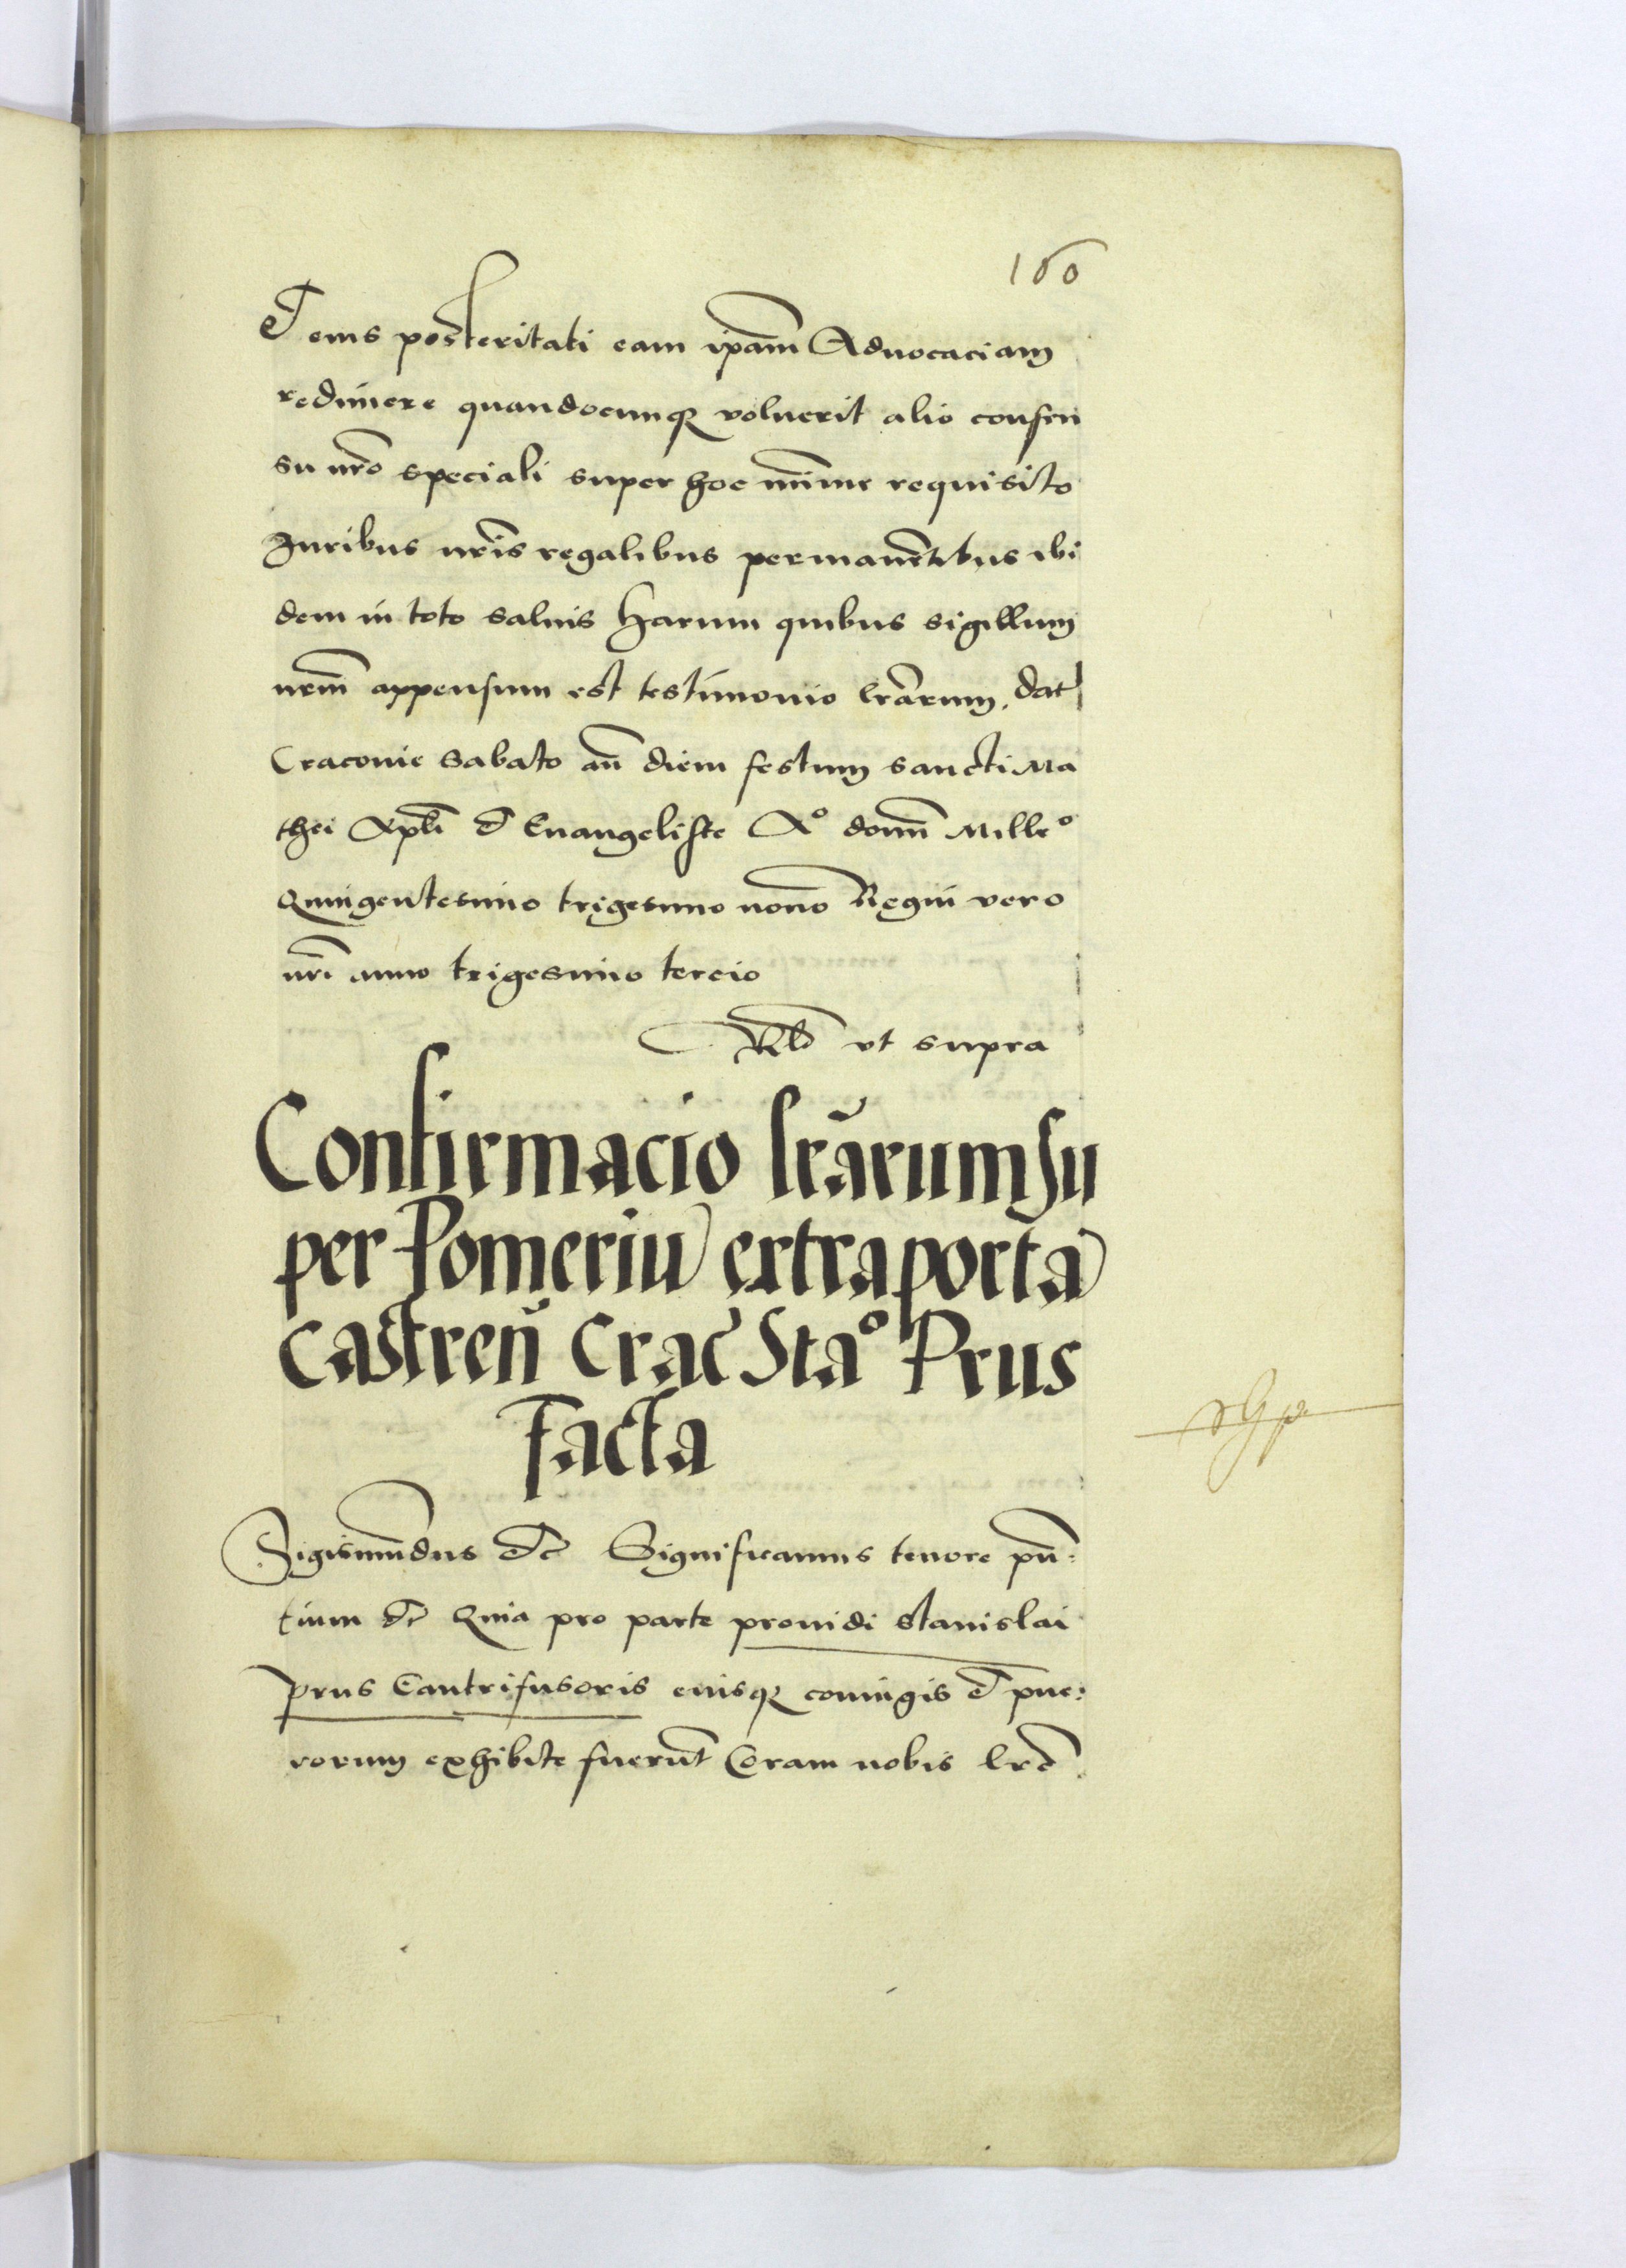 160
Et eius posteritati eam ip̃am Aduocaciam
redimere quandocunq₃ voluerit alio consen
su nr̃o speciali super hoc minime requisito
Iuribus nr̃is regalibus permanen̄tibus ibi
dem in toto saluis harum quibus sigillum
nrm̃ appensum est testimonio lrãrum. dat
Cracouie sabato añ diem festum sancti Ma
thei Apl̃i et Euangeliste A° domĩ Mille°
Quingentesimo trigesimo nono Regni vero
nrĩ anno trigesimo tercio
Rl̃o vt supra
Confirmacio lrãrum su
per Pomeriũ extra portã
Castreñ Crac̃ Sta° Prus
facta
Sigismũdus etc̃ Significamus tenore pñ:
tium etc̃ Quia pro parte prouidi Stanislai
Prus Cantrifusoris eiusq₃ coniugis et pue:
rorum exhibite fuerũt Coram nobis lrẽ